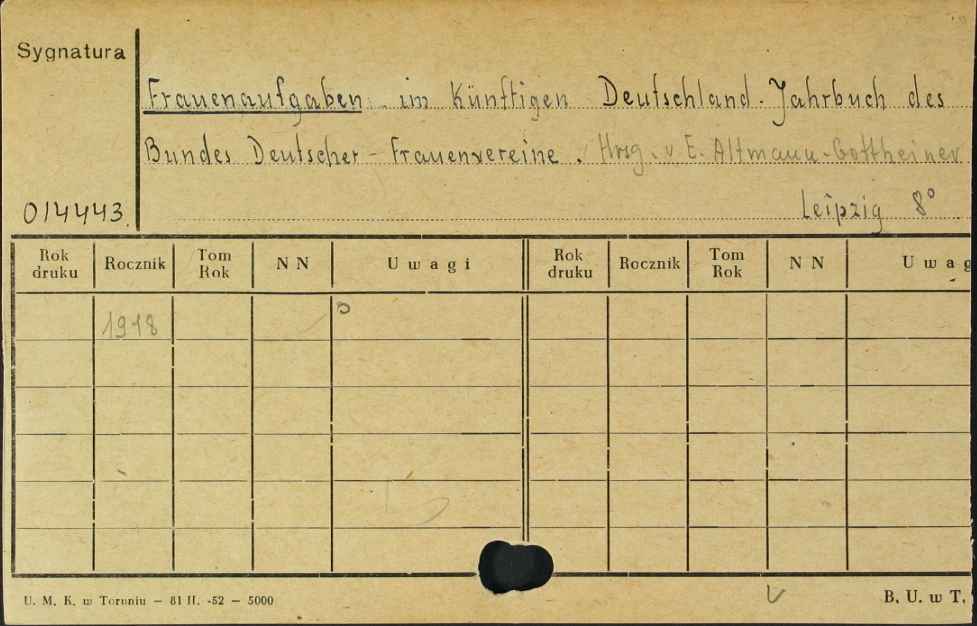 Sygnatura
Frauenaufgaben im Künftigen Deutschland. Jahrbuch des
Bundes Deutscher-Frauenvereine. Hrsg. v E. Altmann-Gottheiner
014443. Leipzig 8°
Rok druku Rocznik Tom Rok N N Uwagi Rok druku Rocznik Tom Rok N N Uwag
1918
U. M. K. w Toruniu — 81 II. -52 — 5000 B. U. w T.